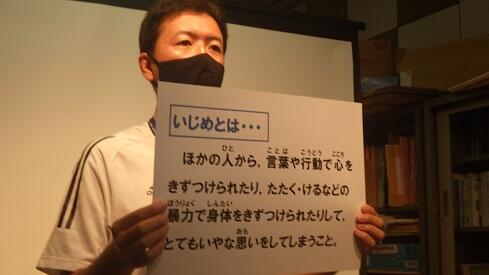 いじめとは・・・
ほかの人から，言葉や行動で心を
きずつけられたり，たたく・けるなどの
暴力で身体をきずつけられたりして，
とてもいやな思いをしてしまうこと。